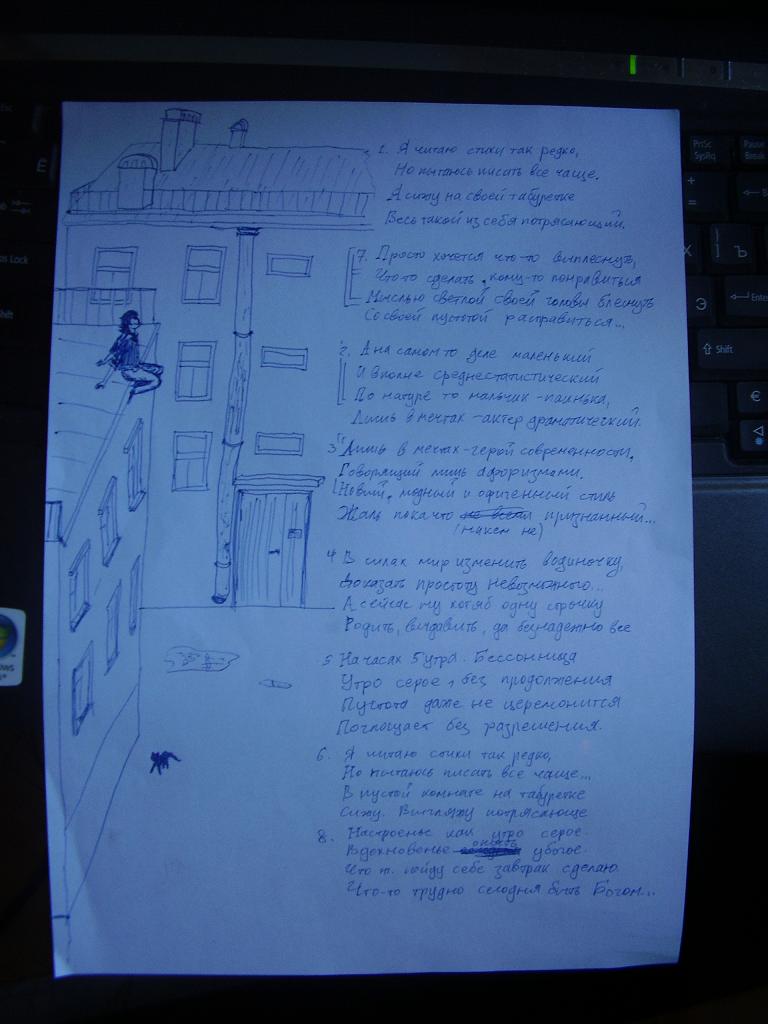 1. Я читаю стихи так редко,
Но пытаюсь писать все чаще.
Я сижу на своей табуретке
Весь такой из себя потрясающий.
7. Просто хочется что-то выплеснуть,
Что-то сделать, кому-то понравиться
Мыслью светлой своей головы блеснуть
Со своей пустотой расправиться...
2. А на самом то деле маленький
И вполне среднестатистический
По натуре то мальчик-паинька,
Лишь в мечтах - актер драматический.
3 Лишь в мечтах - герой современности,
Говорящий лишь афоризмами.
Новый, модный и офигенный стиль
Жаль пока что признанный...
(никем не)
4 В силах мир изменить водиночку,
Доказать простоту невозможного...
А сейчас ну хотяб одну строчку
Родить, выдавить, да безнадежно все
5 На часах 5 утра. Бессонница
Утро серое, без продолжения
Пустота даже не церемонится
Поглощает без разрешения.
6. Я читаю стихи так редко,
Но пытаюсь писать все чаще...
В пустой комнате на табуретке
Сижу. Выгляжу потрясающе
8. Настроенье как утро серое.
Вдохновенье опять убогое.
Что ж. пойду себе завтрак сделаю.
Что-то трудно сегодня быть Богом...
PrtSc
SysRq
Pause
Break
+
=
Х
Ъ
Э
Enter
Shift
€
Esc
Ё